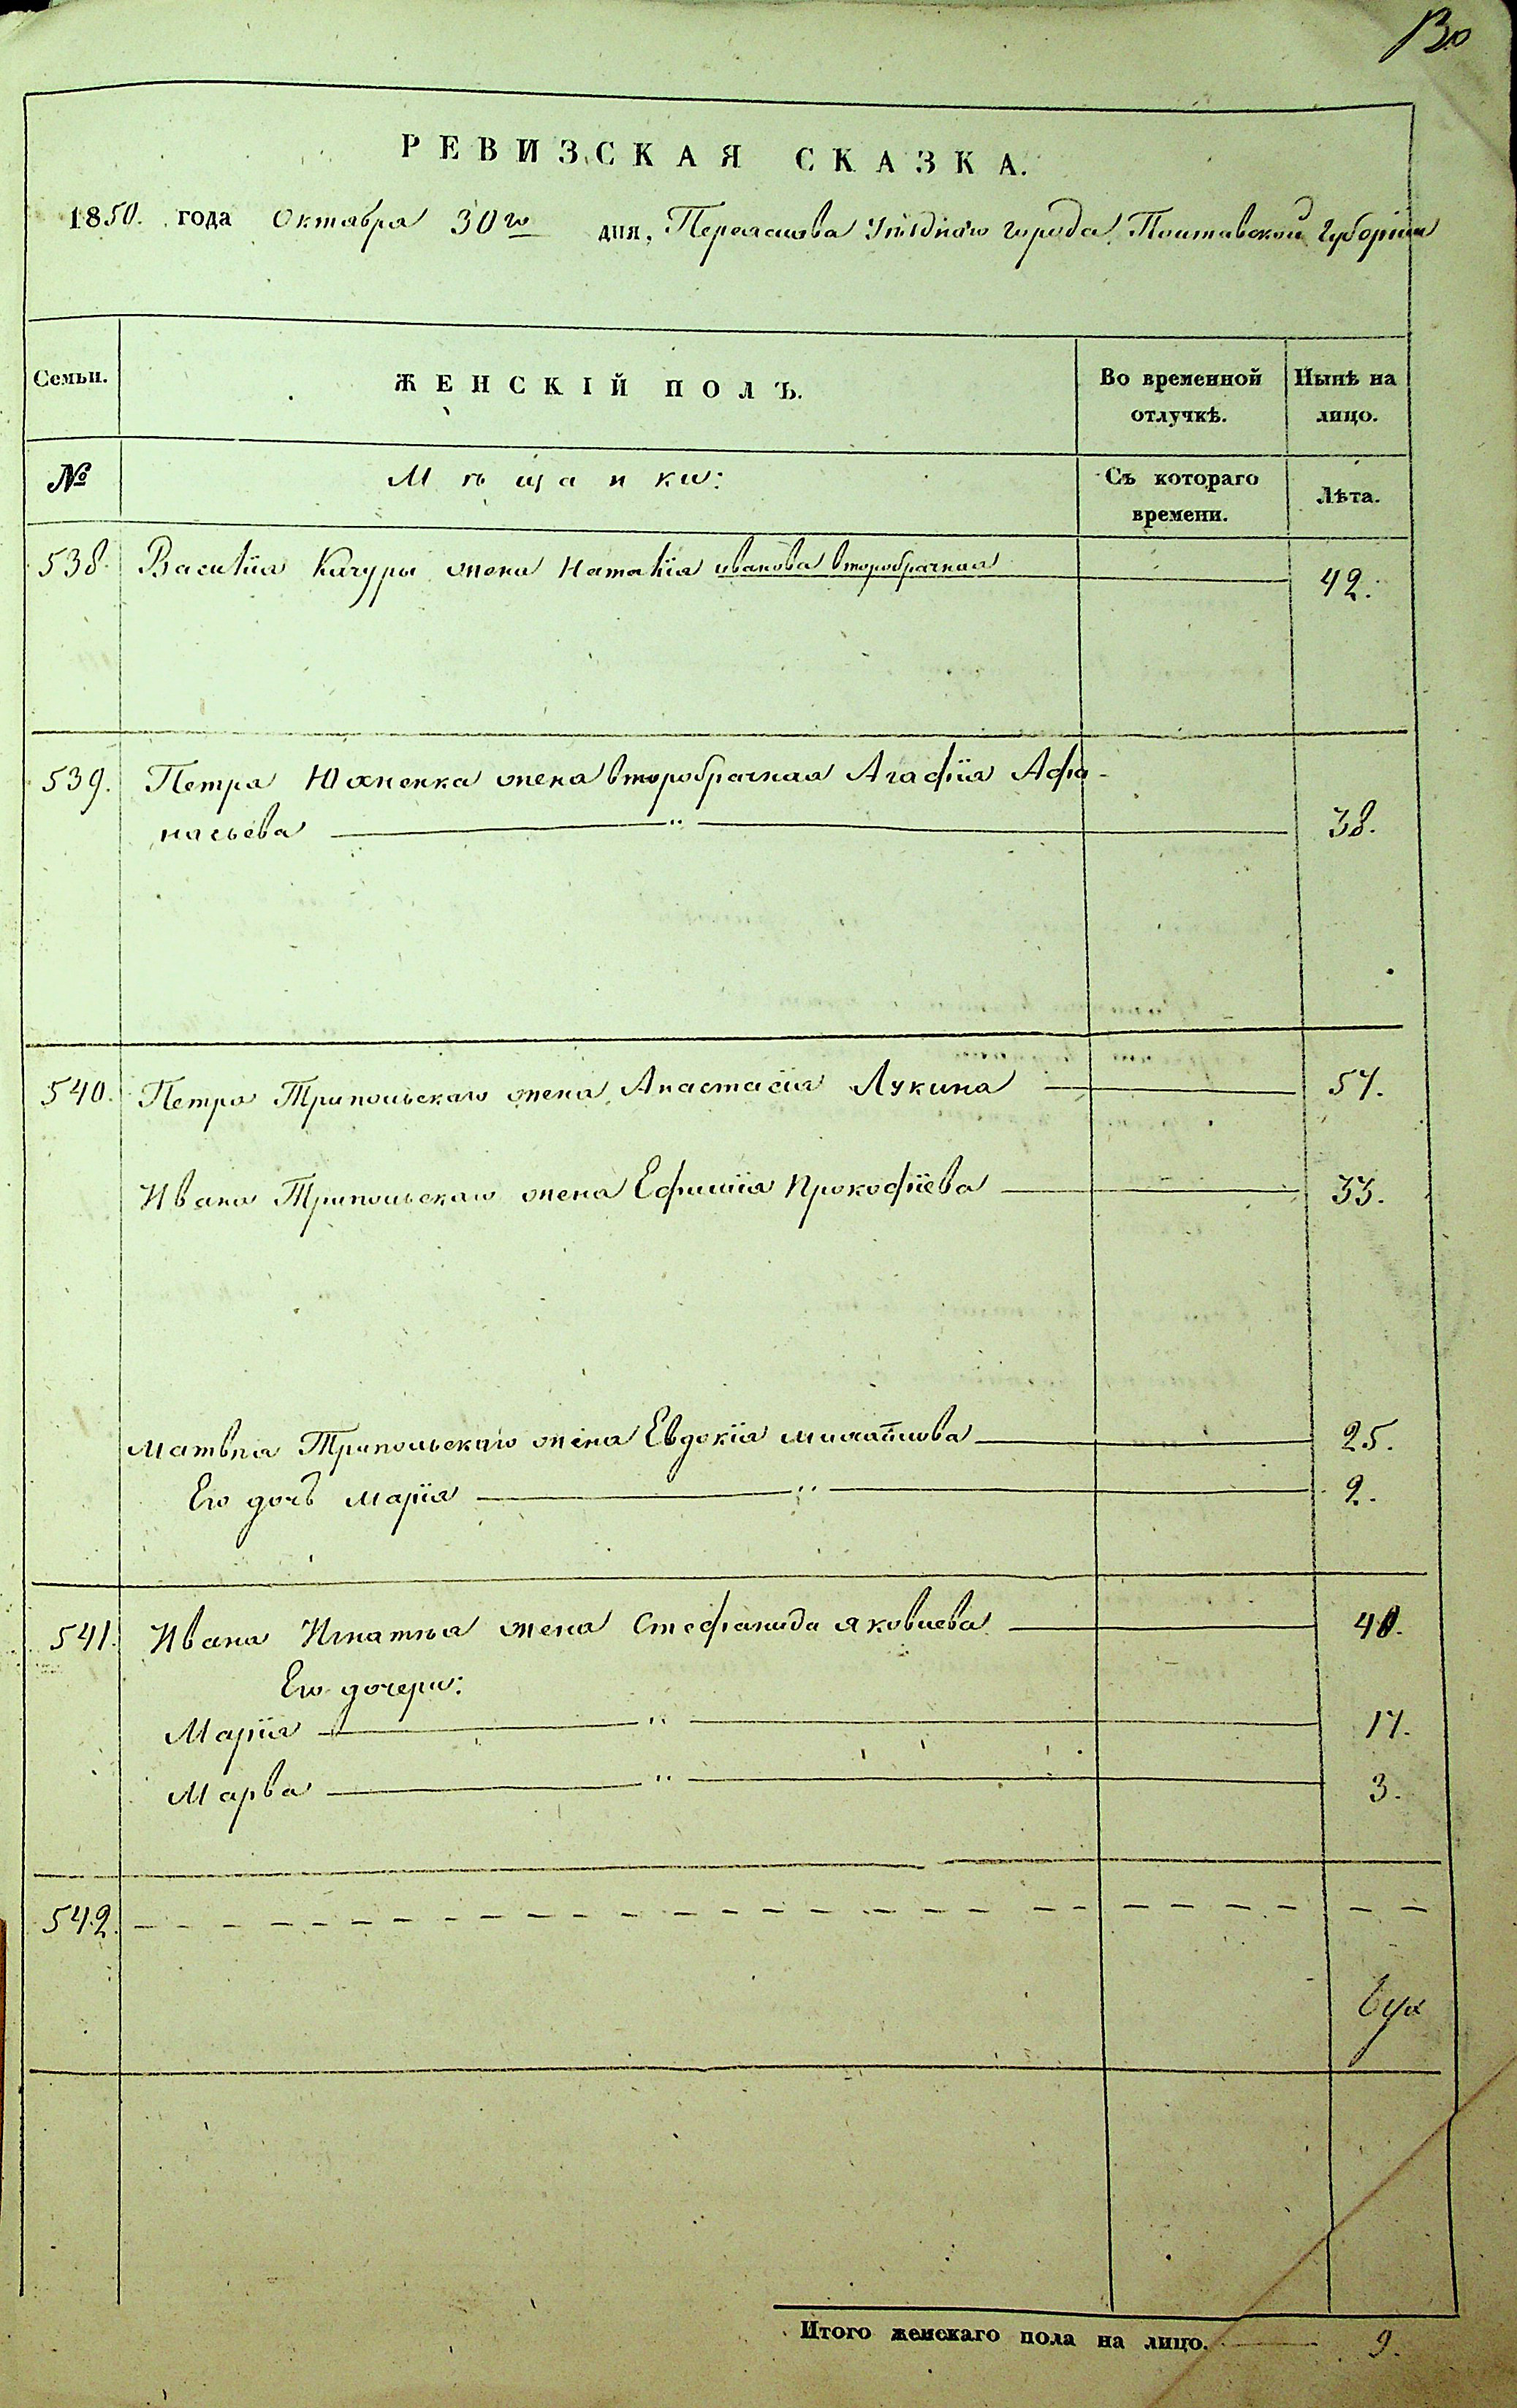 РЕВИЗСКАЯ СКАЗКА.
1850. года Октября 30го дня, Переяслова Уѣзднаго города Полтавской Губерніи
Семьи. ЖЕНСКІЙ ПОЛЪ. Во временной отлучкѣ. Нынѣ на лицо.
№ Мѣщанки: Съ котораго времени. Лѣта.
538. Василія Качуры жена Наталія иванова второбрачная 42.
539. Петра Юхненка жена второбрачная Агафія Афа-
насьева 38.
540. Петра Трипольскаго жена Анастасія Лукина 57.
Ивана Трипольскаго жена Ефимія Прокофіева 33.
Матвѣя Трипольскаго жена Евдокія михайлова 25.
Его дочь марія 2.
541. Ивана Игнатѣя жена Стефанида яковлева 40.
Его дочери:
Марія 17.
Марва 3.
542.
Итого женскаго пола на лицо. 9.